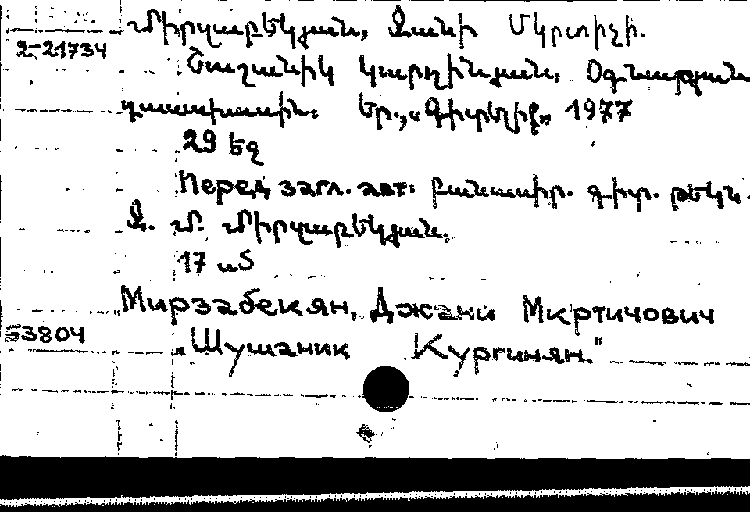 Միրզաբեկյան, Ջանի Մկրտիչի.
2-21734
Շուշանիկ Կուրղինյան, Օգնության
դասախոսին: Եր., «Գիտելիք» 1977
29 եջ
Перед загл. авт: բանասիր. գիտ. թեկն.
Ջ. Մ. Միրզաբեկյան.
17 սմ
Мирзабекян, Джани Мкртичович
53804
"Шушаник Кургинян."